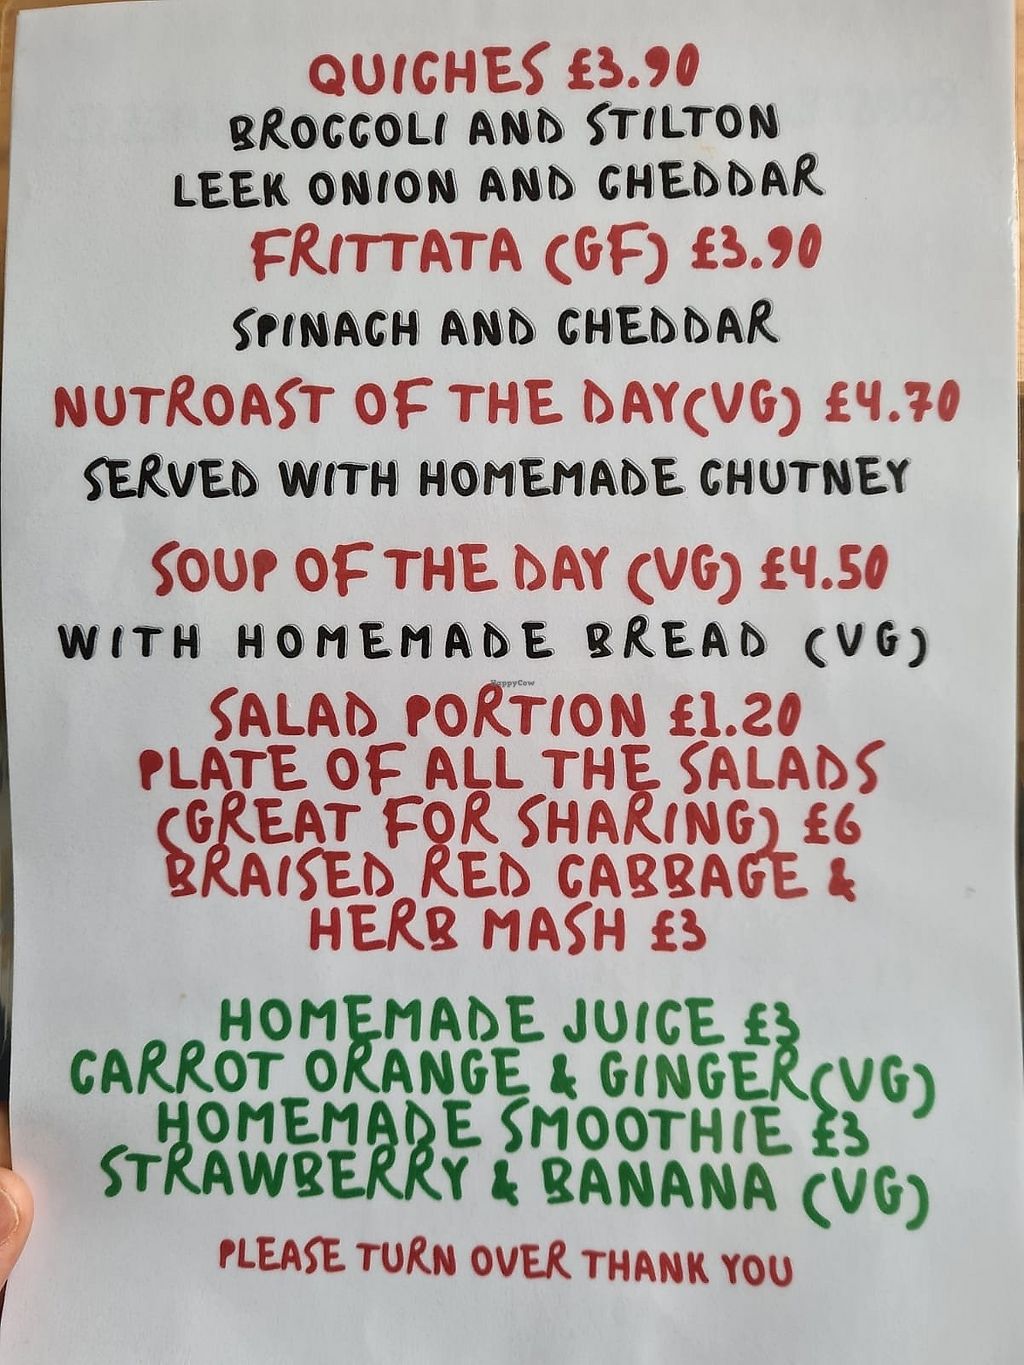 QUICHES £3.90
BROCCOLI AND STILTON
LEEK ONION AND CHEDDAR
FRITTATA (GF) £3.90
SPINACH AND CHEDDAR
NUTROAST OF THE DAY(VG) £4.70
SERVED WITH HOMEMADE CHUTNEY
SOUP OF THE DAY (VG) £4.50
WITH HOMEMADE BREAD (VG)
HappyCow
SALAD PORTION £1.20
PLATE OF ALL THE SALADS
(GREAT FOR SHARING) £6
BRAISED RED CABBAGE &
HERB MASH £3
HOMEMADE JUICE £3
CARROT ORANGE & GINGER(VG)
HOMEMADE SMOOTHIE £3
STRAWBERRY & BANANA (VG)
PLEASE TURN OVER THANK YOU